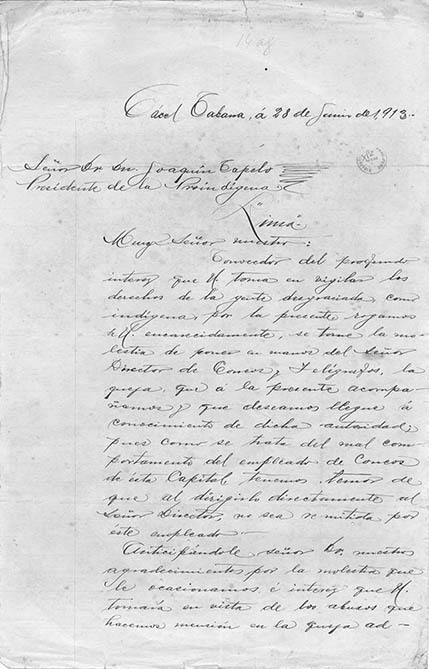 Cabana, á 28 de Junio de 1913.
Señor Dr. Dn. Joaquín Capelo
Presidente de la Proindígena
Lima.
Muy Señor nuestro:
Conocedor del profundo
interez que U. toma en vigilar los
derechos de la gente desgraciada como
indígena, por la presente rogamos
á U. encarecidamente, se tome la mo-
lestia de poner en manos del Señor
Director de Correos y Telégrafos, la
queja, que á la presente acompa-
ñamos, y que deseamos llegue á
conocimiento de dicha autoridad,
pues como se trata del mal com-
portamento del empleado de Correos
de ésta Capital, tenemos temor de
que al dirigirlo directamente al
Señor Director, no sea remitida por
éste empleado.
Anticipándole, señor Dr. nuestro
agradecimiento por la molestia que
le ocasionamos é interez que U.
tomaría en vista de los abusos que
hacemos mención en la queja ad-